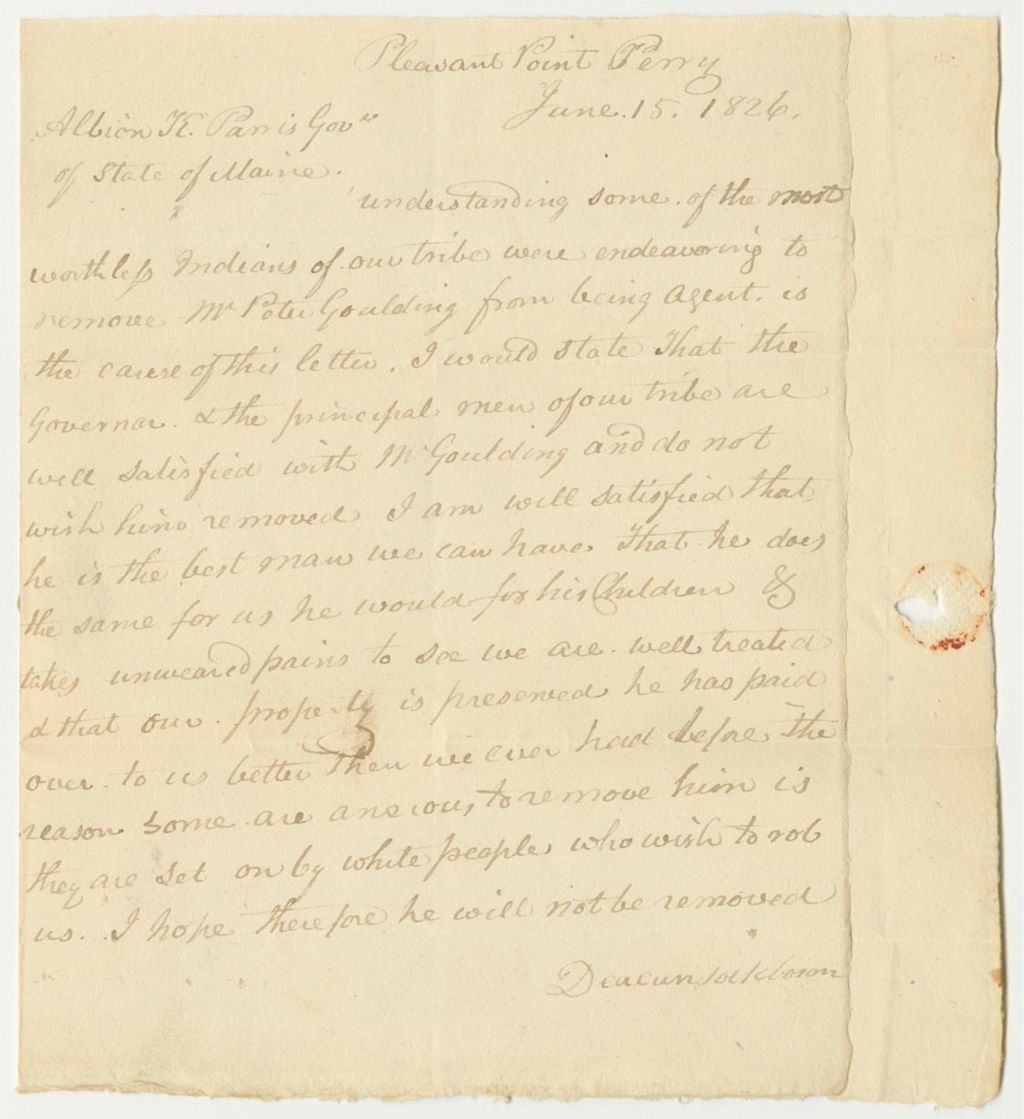 Pleasant Point Perry
June. 15. 1826.
Albion K. Parris Govr
of State of Maine.
understanding some of the most
worthless Indians of our tribe were endeavoring to
remove Mr Peter Goulding from being Agent. is
the cause of this letter. I would state that the
Governor. & the principal men of our tribe are
well satisfied with Mr Goulding and do not
wish him removed I am well satisfied that
he is the best man we can have that he does
the same for us he would for his Children &
takes unweared pains to see we are well treated
& that our property is preserved he has paid
over to us better then we ever had before the
reason some are anxious to remove him is
they are set on by white people who wish to rob
us. I hope therefore he will not be removed
Deacun Sockbason